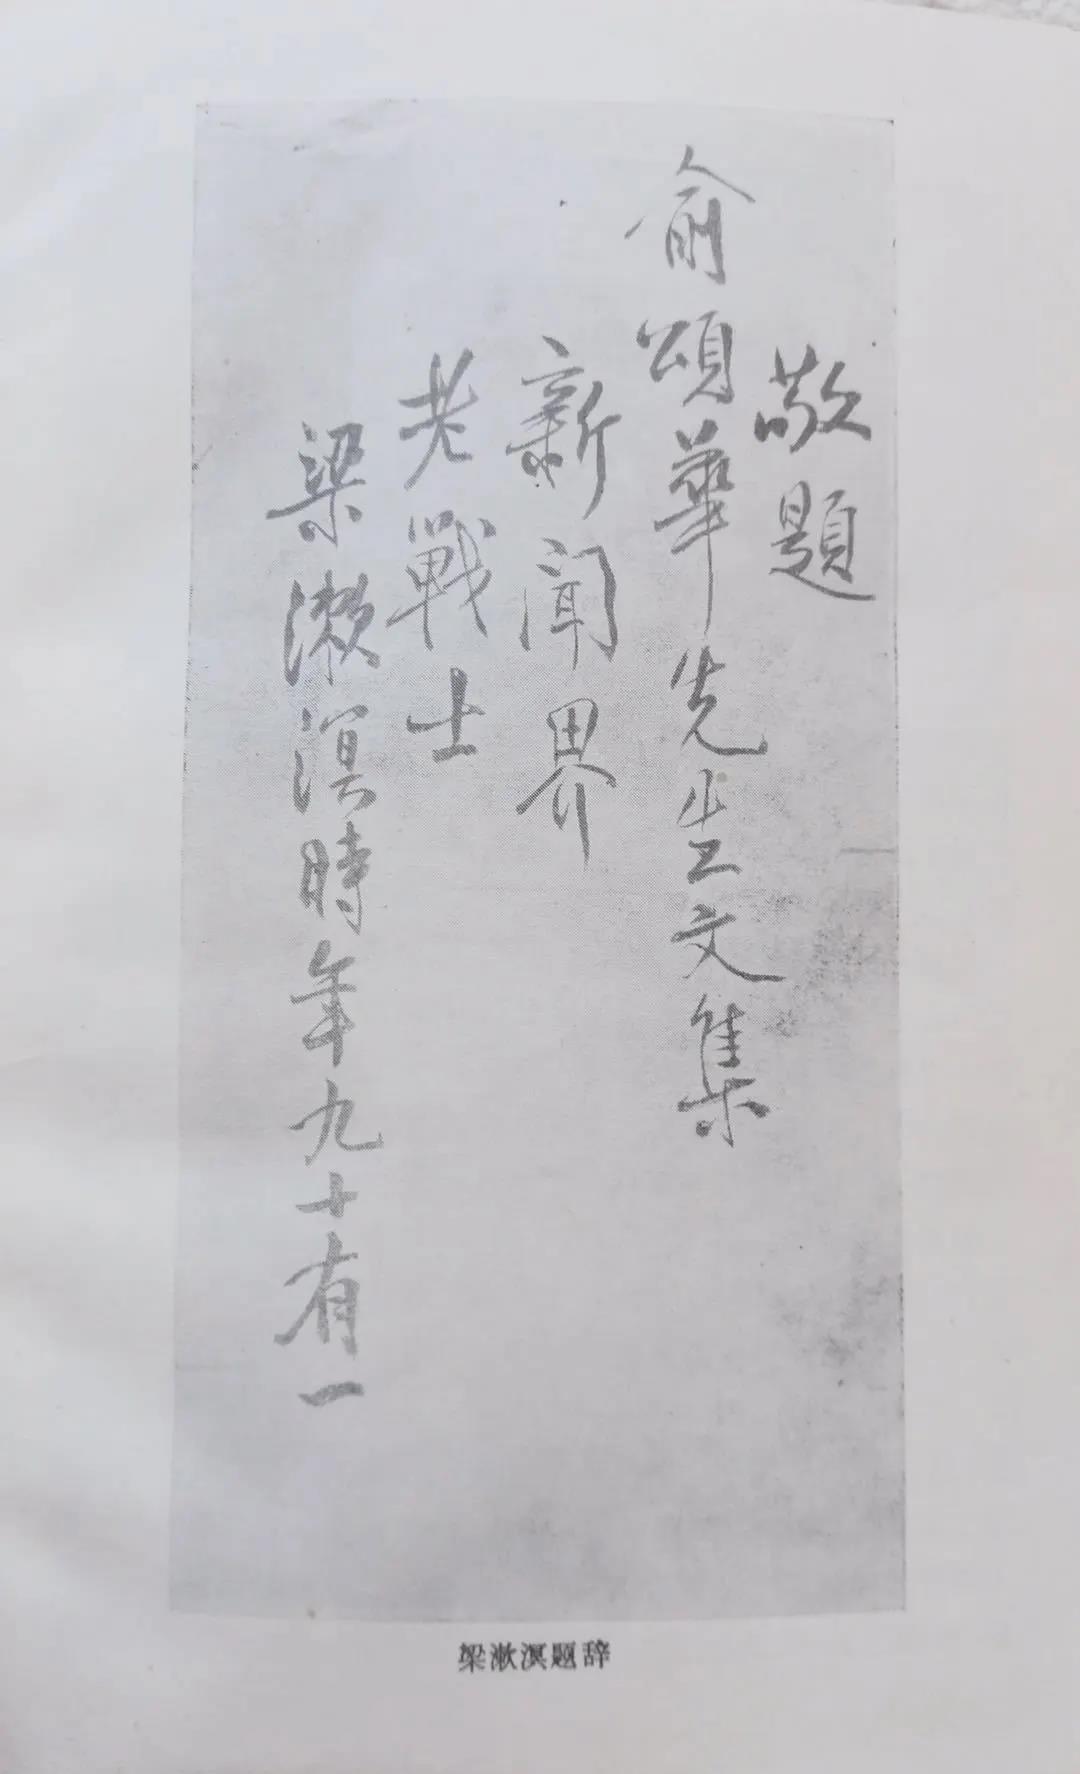 敬題
俞頌華先生文集
新聞界
老戰士
梁漱溟時年九十有一
梁漱溟题辞